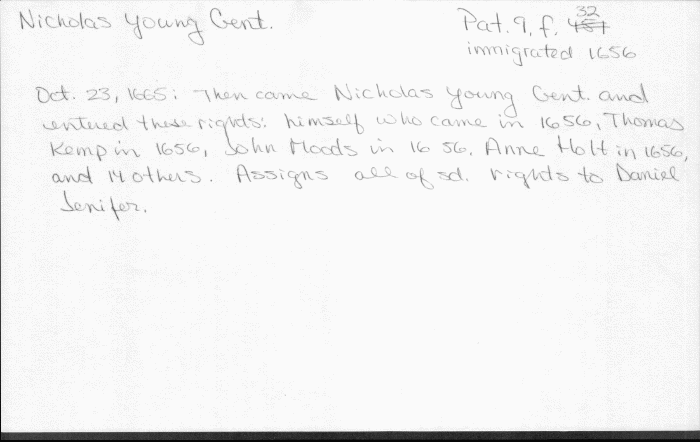 Nicholas Young Gent.
Pat. 9, f. 32
immigrated 1656
Oct. 23, 1665: Then came Nicholas Young Gent. and
entered these rights: himself who came in 1656, Thomas
Kemp in 1656, John Hoods in 16 56, Anne Holt in 1656,
and 14 others. Assigns all of sd. rights to Daniel
Jenifer.